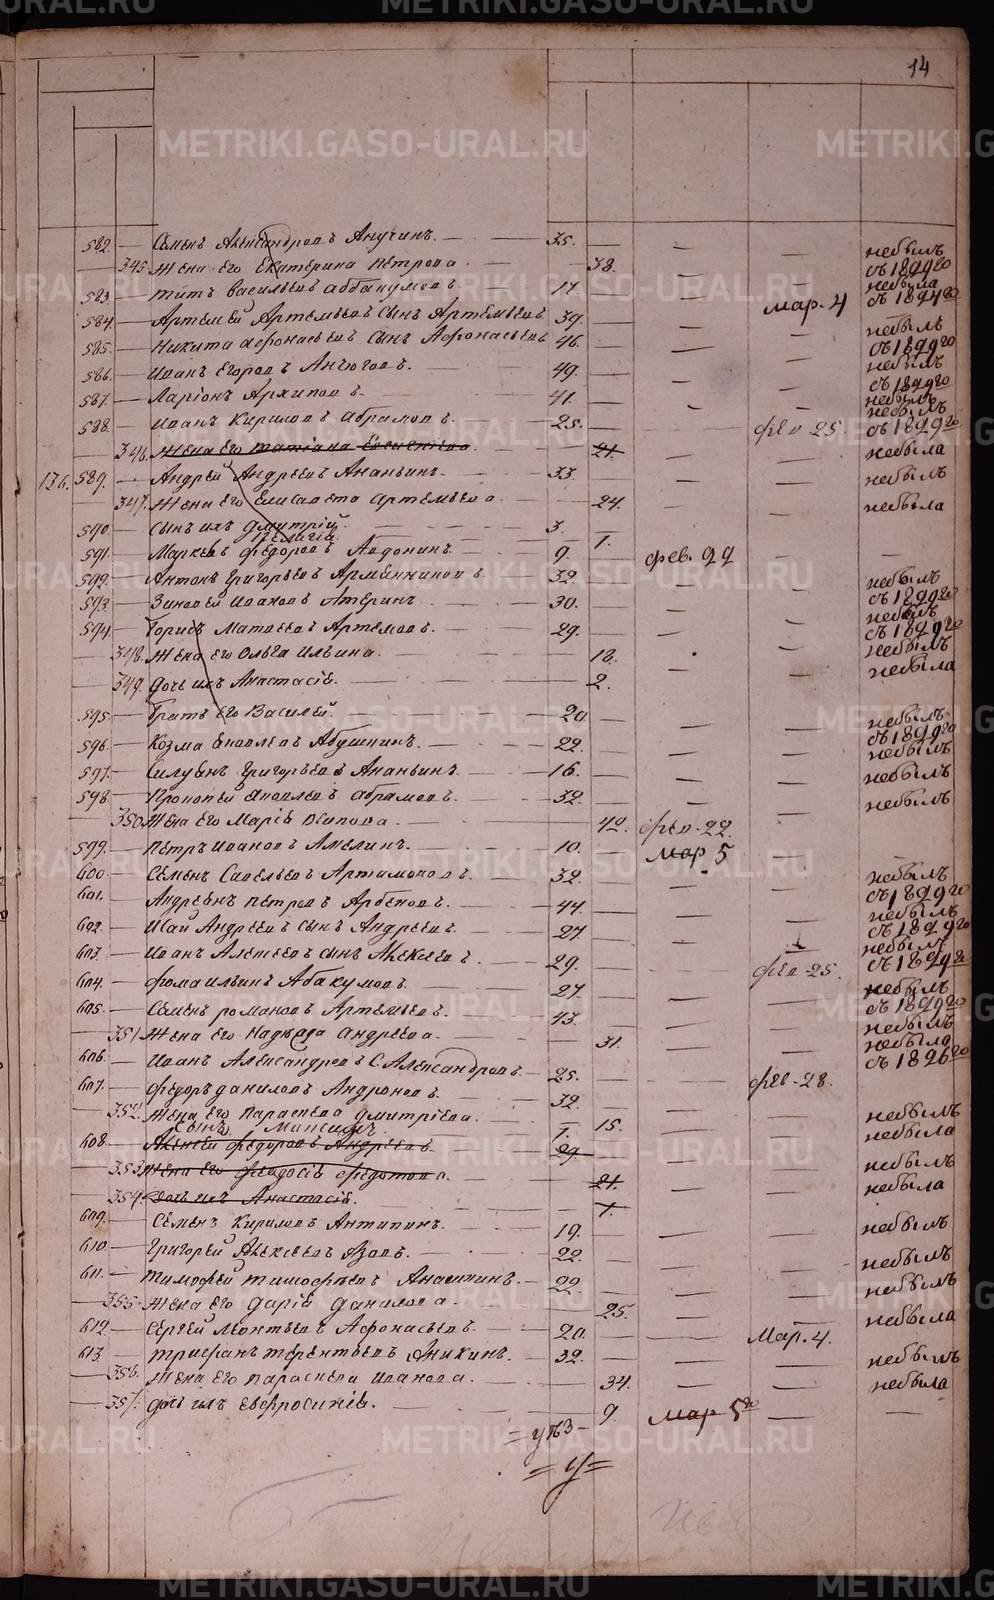 14
582. Семенъ Александровъ Анучинъ. 35. небылъ съ 1822го
345. Жена его Екатерина Петрова. 38. небыла
583. Титъ Васильевъ Аббакумовъ 17. Мар. 4 съ 1824го
584. Артемей Артемьевъ сынъ Артемьевъ 39. небылъ съ 1822го
585. Никита Афонасьевъ сынъ Афонасьевъ 46. небылъ
586. Иванъ Егоровъ 49. съ 1822го небылъ
587. Ларионъ Архиповъ 41. небылъ съ 1822го
588. Иванъ Кириловъ Абрамовъ. 25. фев 25.
346. Жена его Татiана 21. небыла
136. 589. Андрей Андреевъ Ананьинъ. 33. небылъ
347. Жена его Елисавета Артемьева 24. небыла
590. Сынъ ихъ Дмитрiй. 3.
1.
591. Федоровъ Авдонинъ 9. фев. 22
592. Антонъ Григорьевъ 32. небылъ съ 1822го
593. Зиновей Ивановъ 30. небылъ съ 1822го
594. Борисъ Матвеевъ Артемовъ. 29. небылъ
348. Жена его Ольга Ильина. 18. небыла
349. Дочь ихъ Анастасiя. 2.
595. Братъ его Василей. 20 небылъ съ 1822го
596. Козма Яковлевъ Абушкинъ. 22. небылъ
597. Силуянъ Григорьевъ Ананьинъ 16. небылъ
598. Прокопей Яковлевъ Абрамовъ. 32. небылъ
350. Жена его Марiя Осипова. 42. фев. 22.
599. Петръ Ивановъ Амелинъ. 10. Мар 5
600. Семенъ Савельевъ Артамоновъ. 32. небылъ съ 1822го
601. Андреянъ Петровъ 44. небылъ съ 1822го
602. Исай Андреевъ сынъ Андреевъ. 27. небылъ съ 1822го
603. Иванъ Алексеевъ сынъ Алексеевъ. 29. фев 25.
604. Фома Ильинъ Абакумовъ. 27. небылъ съ 1822го
605. Семенъ Романовъ Артемьевъ. 43. небылъ
351. Жена его Надежда Андреева. 31. небыла съ 1826го
606. Иванъ Александровъ С. Александровъ. 25. фев. 28.
607. Федоръ Даниловъ Андроновъ. 32. небылъ
352. Жена его Параскева Дмитрiева. 15. небыла
Сынъ 1.
608. Алексей Федоровъ Андреевъ 29 небылъ
353. Жена его Федосiя Федотова. 21. небыла
354. Дочь ихъ Анастасiя. 1.
609. Семенъ Кириловъ Антипинъ. 19. небылъ
610. Григорей Алексеевъ Азовъ. 22. небылъ
611. Тимофей Тимофеевъ 22. небылъ
355. Жена его Дарiя Данилова. 25. небыла
612. Сергей Леонтьевъ Афонасьевъ. 20. Мар. 4.
613. Трифанъ Терентьевъ Аникинъ. 32. небылъ
356. Жена его Параскева Иванова. 34. небыла
357. Дочь ихъ Евфросинiя. 9 Мар 5го